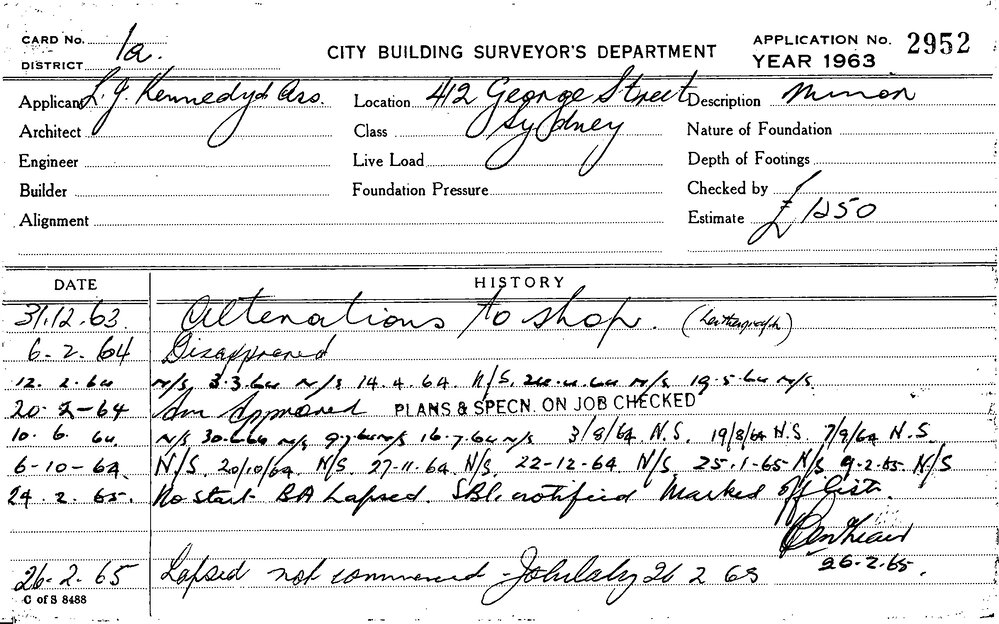 CARD No. 1a.
DISTRICT
CITY BUILDING SURVEYOR'S DEPARTMENT
APPLICATION No. 2952
YEAR 1963
Applicant L. J. Kennedy & Ass. Location 412 George Street Description Minor
Architect Class Sydney Nature of Foundation
Engineer Live Load Depth of Footings
Builder Foundation Pressure Checked by
Alignment Estimate £1250
DATE HISTORY
31.12.63. Alterations to shop.
6-2-64 Disapproved
12. 2.64 N/S, 3.3.64 N/S 14.4.64. N/S. N/S. 19.5.64 N/S.
20-2-64 Am Approved PLANS & SPECN. ON JOB CHECKED
10. 6. 64 N/S 30.6.64 N/S 9.7.64 N/S 16.7.64 N/S 3/8/64 N.S. 19/8/64 N.S. 7/9/64 N.S.
6-10-64 N/S. 20/10/64 N/S. 27-11-64. N/S. 22-12-64. N/S. 25.1-65 N/S 9.2.65 N/S
24. 2. 65. No start BA Lapsed. SBI. notified Marked off list.
26.2.65.
26-2-65 Lapsed not commenced - 26 2 65
C of S 8488